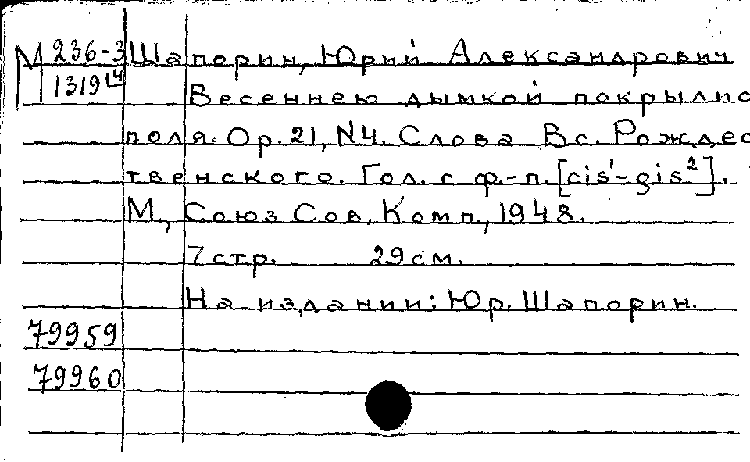 М 236-3 Шапорин, Юрий Александрович
1319 14 Весеннею дымкой покрылис
поля. Ор. 21, N4. Слова Вс. Рождес
твенского. Гол. с ф.-п. [cis¹-gis²].
М., Союз Сов. Комп., 1948.
7 стр. 29 см.
На издании: Юр. Шапорин.
79959
79960